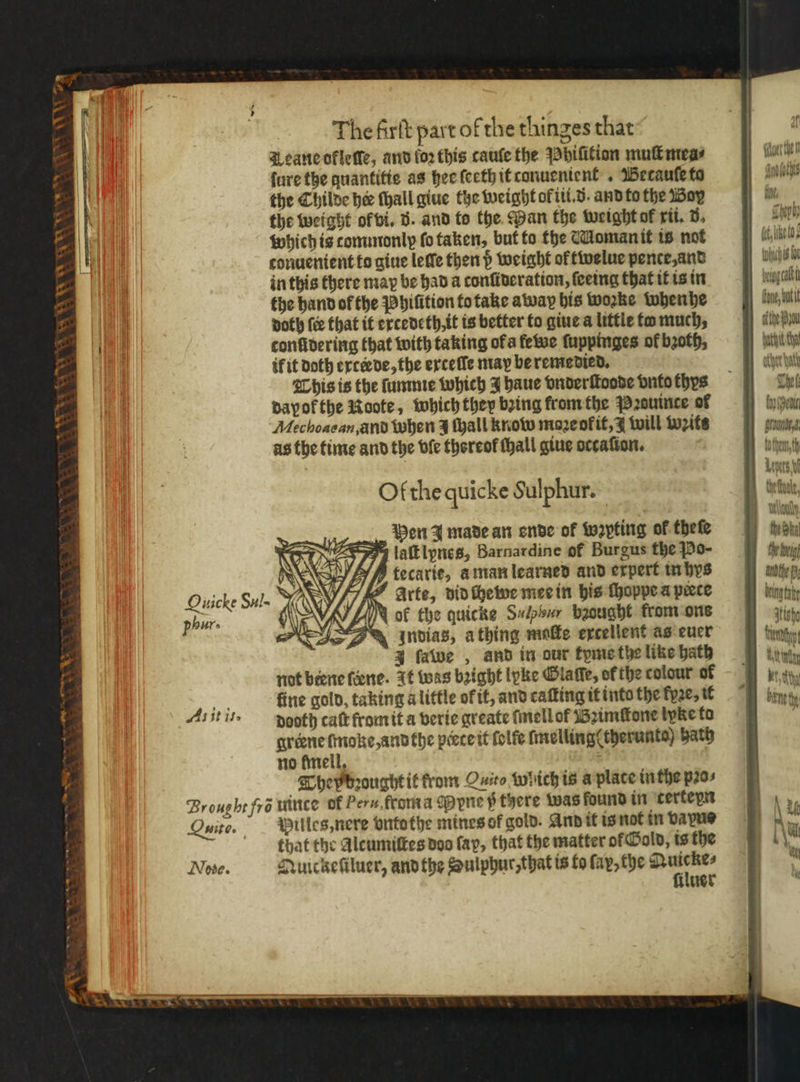 The first part of the thinges that
Leane of lesse, and for this cause the Phisition must mea-
sure the quantitie as hee seeth it conuenient . Because to
the Childe hee shall giue the weight of iii.d. and to the Boy
the weight of vi. d. and to the Man the weight of xii. d.
which is commonly so taken, but to the Woman it is not
conuenient to giue lesse then þͤ weight of twelue pence,and
in this there may be had a consideration, seeing that it is in
the hand of the Phisition to take away his worke when he
doth see that it excedeth,it is better to giue a little too much,
considering that with taking of a fewe suppinges of broth,
if it doth exceede,the excesse may be remedied.
This is the summe which I haue vnderstoode vnto thys
day of the Roote, which they bring from the Prouince of
Mechoacan,and when I shall know more of it,I will write
as the time and the vse thereof shall giue occasion.
Of the quicke Sulphur.
WHen I made an ende of wryting of these
last lynes, Barnardine of Burgus the Po-
tecarie, a man learned and expert in hys
Arte, did shewe mee in his shoppe a peece
Quicke Sul-
phur.
of the quicke Sulphur brought from one
Indias, a thing moste excellent as euer
I sawe , and in our tyme the like hath
not beene seene. It was bright lyke Glasse, of the colour of
fine gold, taking a little of it, and casting it into the fyre, it
As it is.
dooth cast from it a verie greate smell of Brimstone lyke to
greene smoke,and the peece it selfe smelling(therunto) hath
no smell.
They brought it from Quito which is a place in the pro-
Brought frō
Quito.
uince of Peru,from a Myne þͭ there was found in certeyn
Hilles,nere vnto the mines of gold. And it is not in vayne
that the Alcumistes doo say, that the matter of Gold, is the
Note.
Quickesiluer, and the Sulphur,that is to say, the Quicke-
siluer